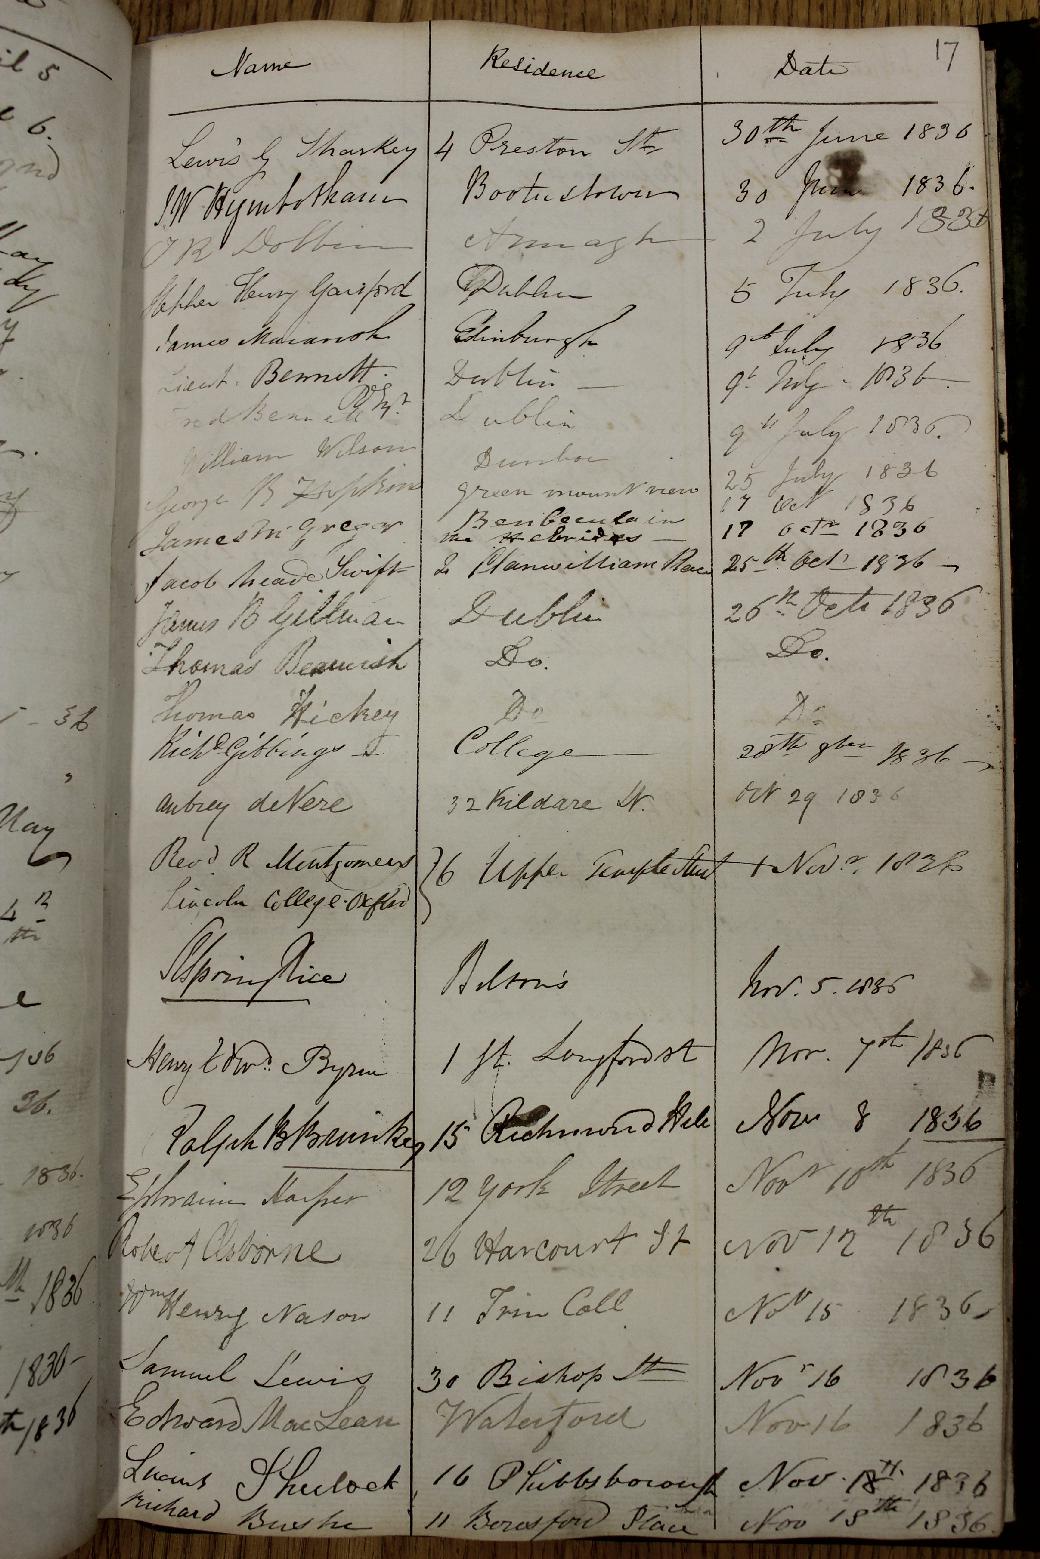 17
Name Residence Date
Lewis G Sharkey 4 Preston St 30th June 1836
J W Hymbotham Booterstown 30 June 1836.
O R Dobbin Armagh 2 July 1836
Henry Dublin 5 July 1836.
James Edinburgh 9th July 1836
Lieut. Bennett. Dublin 9th July 1836
Fred Bennett Dublin 9th July 1836.
William Wilson 25 July 1836
George B Hopkins green mount view 17 Oct 1836
James McGregor Benbecula in
the Hebrides 17 Octr 1836
Jacob Meade Swift 2 Clanwilliam Place 25th Octr 1836
James B Gillman Dublin 26th Oct 1836
Thomas Beamish Do. Do.
Thomas Hickey Do Do
Richd Gibbings College 28th 8ber 1836
Aubrey deVere 32 Kildare St. Oct 29 1836
Revd R Montgomery 76 Upper Temple Street 1 Novr. 1836
Lincoln College Oxford
S Spring Rice Bilton's Nov. 5. 1836
Henry Edwd. Byrne 1 Gt. Longford st Nov. 7th 1836
Ralph B Brunker 15 Richmond Hill Nov 8 1836
Ephraim Harper 12 York Street Novr 10th 1836
Robert Osborne 26 Harcourt St Nov 12th 1836
Wm Henry Nason 11 Trin Coll Novr 15 1836
Samuel Lewis 30 Bishop St Novr 16 1836
Edward MacLean Waterford Nov 16 1836
Lucius 16 Phibsborough Nov. 18th. 1836
Richard Bushe 11 Beresford Place Nov 18th 1836.